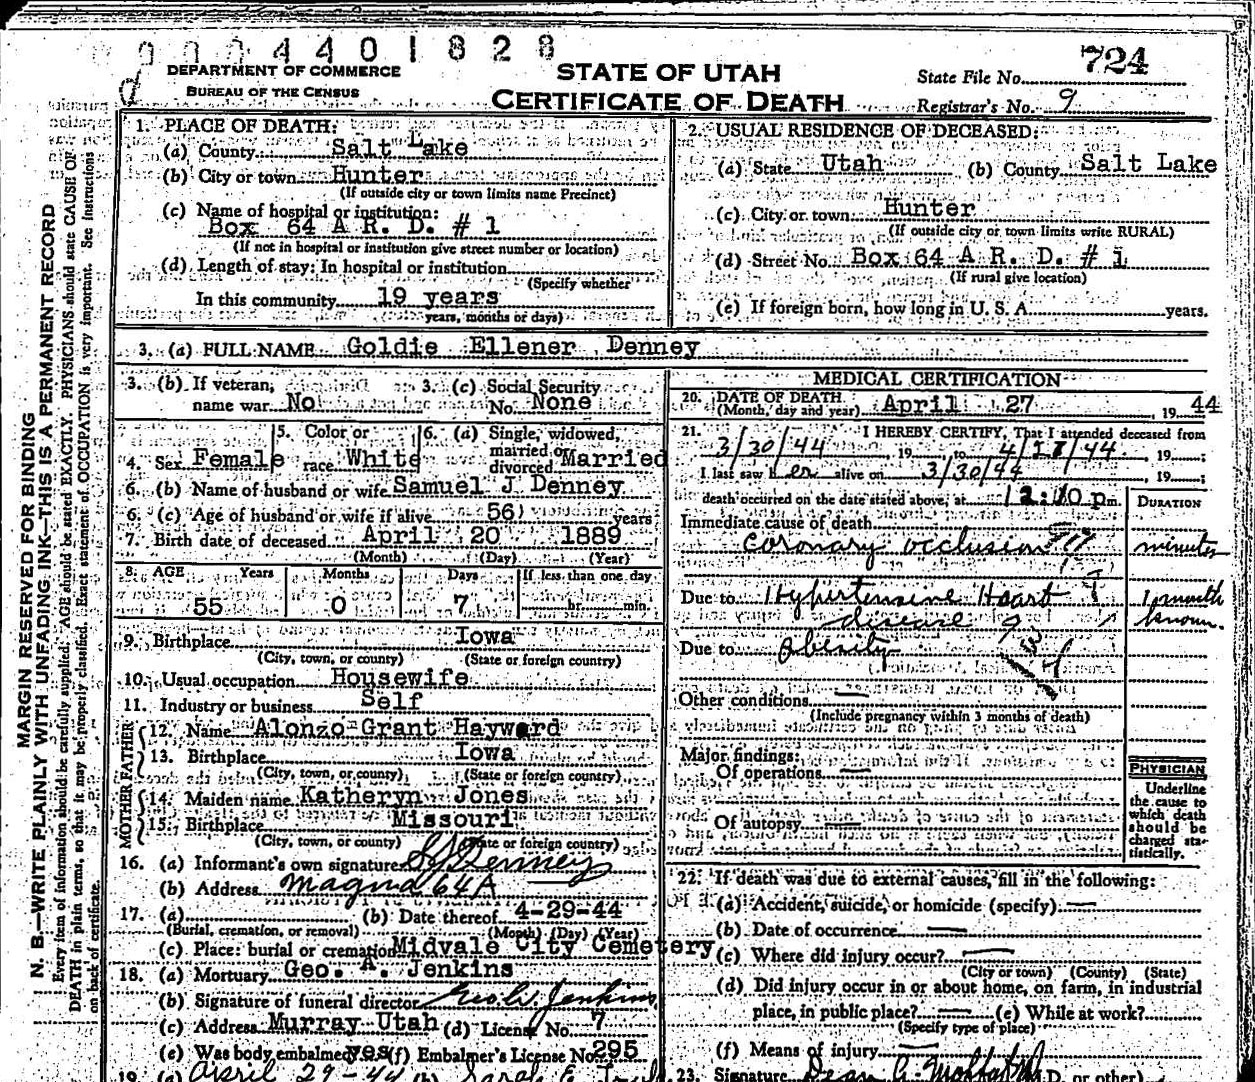 0004401828
DEPARTMENT OF COMMERCE
BUREAU OF THE CENSUS
STATE OF UTAH
CERTIFICATE OF DEATH
State File No. 724
Registrar's No. 9
MARGIN RESERVED FOR BINDING
N. B.—WRITE PLAINLY WITH UNFADING INK—THIS IS A PERMANENT RECORD
Every item of information should be carefully supplied. AGE should be stated EXACTLY. PHYSICIANS should state CAUSE OF
DEATH in plain terms, so that it may be properly classified. Exact statement of OCCUPATION is very important. See instructions
on back of certificate.
1. PLACE OF DEATH:
(a) County Salt Lake
(b) City or town Hunter
(If outside city or town limits name Precinct)
(c) Name of hospital or institution:
Box 64 A R. D. # 1
(If not in hospital or institution give street number or location)
(d) Length of stay: In hospital or institution
(Specify whether
In this community 19 years
years, months or days)
2. USUAL RESIDENCE OF DECEASED:
(a) State Utah (b) County Salt Lake
(c) City or town Hunter
(If outside city or town limits write RURAL)
(d) Street No. Box 64 A R. D. # 1
(If rural give location)
(e) If foreign born, how long in U. S. A. years.
3. (a) FULL NAME Goldie Ellener Denney
3. (b) If veteran, name war No
3. (c) Social Security No. None
4. Sex Female
5. Color or race White
6. (a) Single, widowed, married or divorced Married
6. (b) Name of husband or wife Samuel J Denney
6. (c) Age of husband or wife if alive 56 years
7. Birth date of deceased April 20 1889
(Month) (Day) (Year)
8. AGE Years Months Days If less than one day
55 0 7 hr. min.
9. Birthplace Iowa
(City, town, or county) (State or foreign country)
10. Usual occupation Housewife
11. Industry or business Self
FATHER
12. Name Alonzo Grant Hayward
13. Birthplace Iowa
(City, town, or county) (State or foreign country)
MOTHER
14. Maiden name Katheryn Jones
15. Birthplace Missouri
(City, town, or county) (State or foreign country)
16. (a) Informant's own signature S J Denney
(b) Address Magna 64A
17. (a) (b) Date thereof 4-29-44
(Burial, cremation, or removal) (Month) (Day) (Year)
(c) Place: burial or cremation Midvale City Cemetery
18. (a) Mortuary Geo. A. Jenkins
(b) Signature of funeral director Geo. W. Jenkins
(c) Address Murray Utah (d) License No. 7
(e) Was body embalmed yes (f) Embalmer's License No. 295
19. (a) April 29-44 (b) Sarah E.
MEDICAL CERTIFICATION
20. DATE OF DEATH
(Month, day and year) April 27, 1944
21. I HEREBY CERTIFY, That I attended deceased from
3/30/44, 19 to 4/27/44, 19 ;
I last saw her alive on 3/30/44, 19 ;
death occurred on the date stated above, at 12:10 pm.
DURATION
Immediate cause of death
coronary occlusion minutes
Due to Hypertensive Heart disease 1 month known.
Due to Obesity
Other conditions —
(Include pregnancy within 3 months of death)
Major findings:
Of operations —
Of autopsy —
PHYSICIAN
Underline
the cause to
which death
should be
charged sta-
tistically.
22. If death was due to external causes, fill in the following:
(a) Accident, suicide, or homicide (specify) —
(b) Date of occurrence —
(c) Where did injury occur? —
(City or town) (County) (State)
(d) Did injury occur in or about home, on farm, in industrial
place, in public place? — (e) While at work?
(Specify type of place)
(f) Means of injury —
23. Signature Dean A. Moffat M.D. or other)